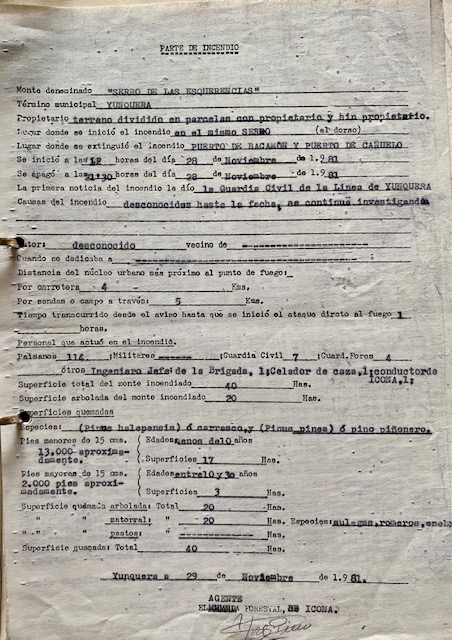 PARTE DE INCENDIO
Monte denominado "SERRO DE LAS ESQUERENCIAS"
Término municipal YUNQUERA
Propietario terreno dividido en parcelas con propietario y sin propietario.
Lugar donde se inició el incendio en el mismo SERRO (al dorso)
Lugar donde se extinguió el incendio PUERTO DE BACAMÓN Y PUERTO DE CAÑUELO
Se inició a las 12 horas del día 28 de Noviembre de 1.981
Se apagó a las 21'30 horas del día 28 de Noviembre de 1.981
La primera noticia del incendio la dío la Guardia Civil de la Linea de YUNQUERA
Causas del incendio desconocidas hasta la fecha, se continua investigando
Autor: desconocido vecino de ----------------
Cuando se dedicaba a ----------------
Distancia del núcleo urbano más próximo al punto de fuego:
Por carretera 4 Kms.
Por sendas o campo a través: 5 Kms.
Tiempo transcurrido desde el aviso hasta que se inició el ataque dircto al fuego 1
horas.
Personal que actuó en el incendio.
Paisanos 114 ;Militares ------ ;Guardia Civil 7 ;Guard.Fores 4
ótros Ingeniero Jefe de la Brigada, 1;Celador de caza,1;conductor de
ICONA,1;
Superficie total del monte incendiado 40 Has.
Superficie arbolada del monte incendiado 20 Has.
Superficies quemadas
Especies: (Pinus halepensis) ó carrasco,y (Pinus pinea) ó pino piñonero.
Pies menores de 15 cms. Edades menos de 10 años
13.000-aproxima-
damente. Superficies 17 Has.
Pies mayores de 15 cms. Edades entre 10 y 30 años
2.000 pies aproxi-
madamente. Superficies 3 Has.
Superficie quemada arbolada: Total 20 Has.
" " matorral: " 20 Has. Especies: aulagas,romeros,
" " pastos: ---------------- Has.
Superficie quemada: Total 40 Has.
Yunquera a 29 de Noviembre de 1.981.
AGENTE
FORESTAL, DE ICONA.